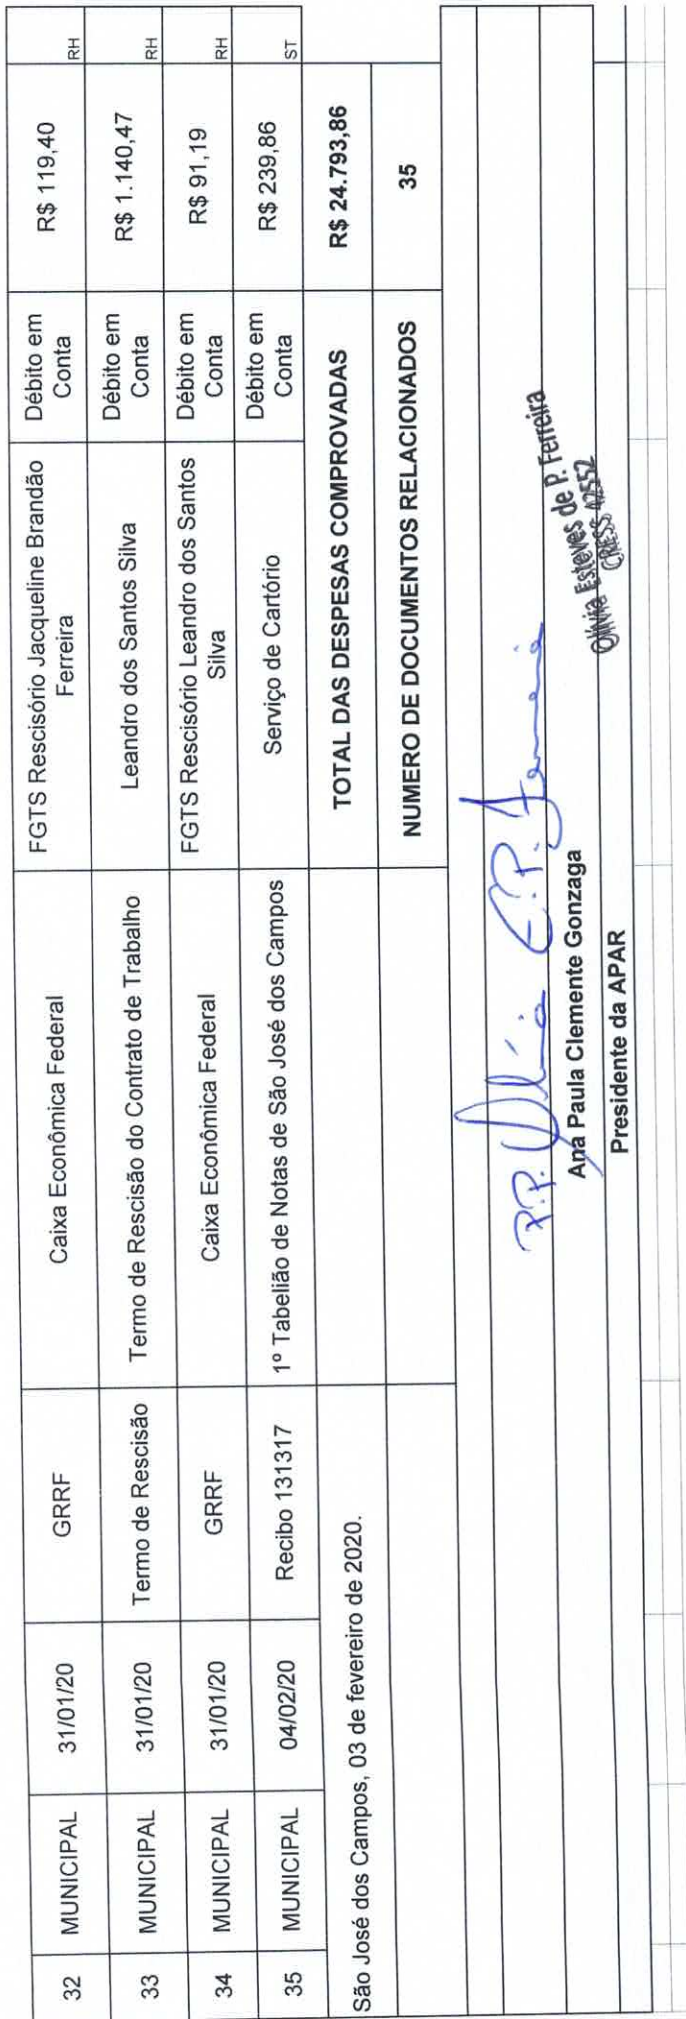 32 MUNICIPAL 31/01/20 GRRF Caixa Econômica Federal FGTS Rescisório Jacqueline Brandão Ferreira Débito em Conta R$ 119,40 RH
33 MUNICIPAL 31/01/20 Termo de Rescisão Termo de Rescisão do Contrato de Trabalho Leandro dos Santos Silva Débito em Conta R$ 1.140,47 RH
34 MUNICIPAL 31/01/20 GRRF Caixa Econômica Federal FGTS Rescisório Leandro dos Santos Silva Débito em Conta R$ 91,19 RH
35 MUNICIPAL 04/02/20 Recibo 131317 1º Tabelião de Notas de São José dos Campos Serviço de Cartório Débito em Conta R$ 239,86 ST
São José dos Campos, 03 de fevereiro de 2020. TOTAL DAS DESPESAS COMPROVADAS R$ 24.793,86
NUMERO DE DOCUMENTOS RELACIONADOS 35
P.P. Olívia E.P. Ferreira
Olívia Esteves de P. Ferreira
CRESS 42552
Ana Paula Clemente Gonzaga
Presidente da APAR